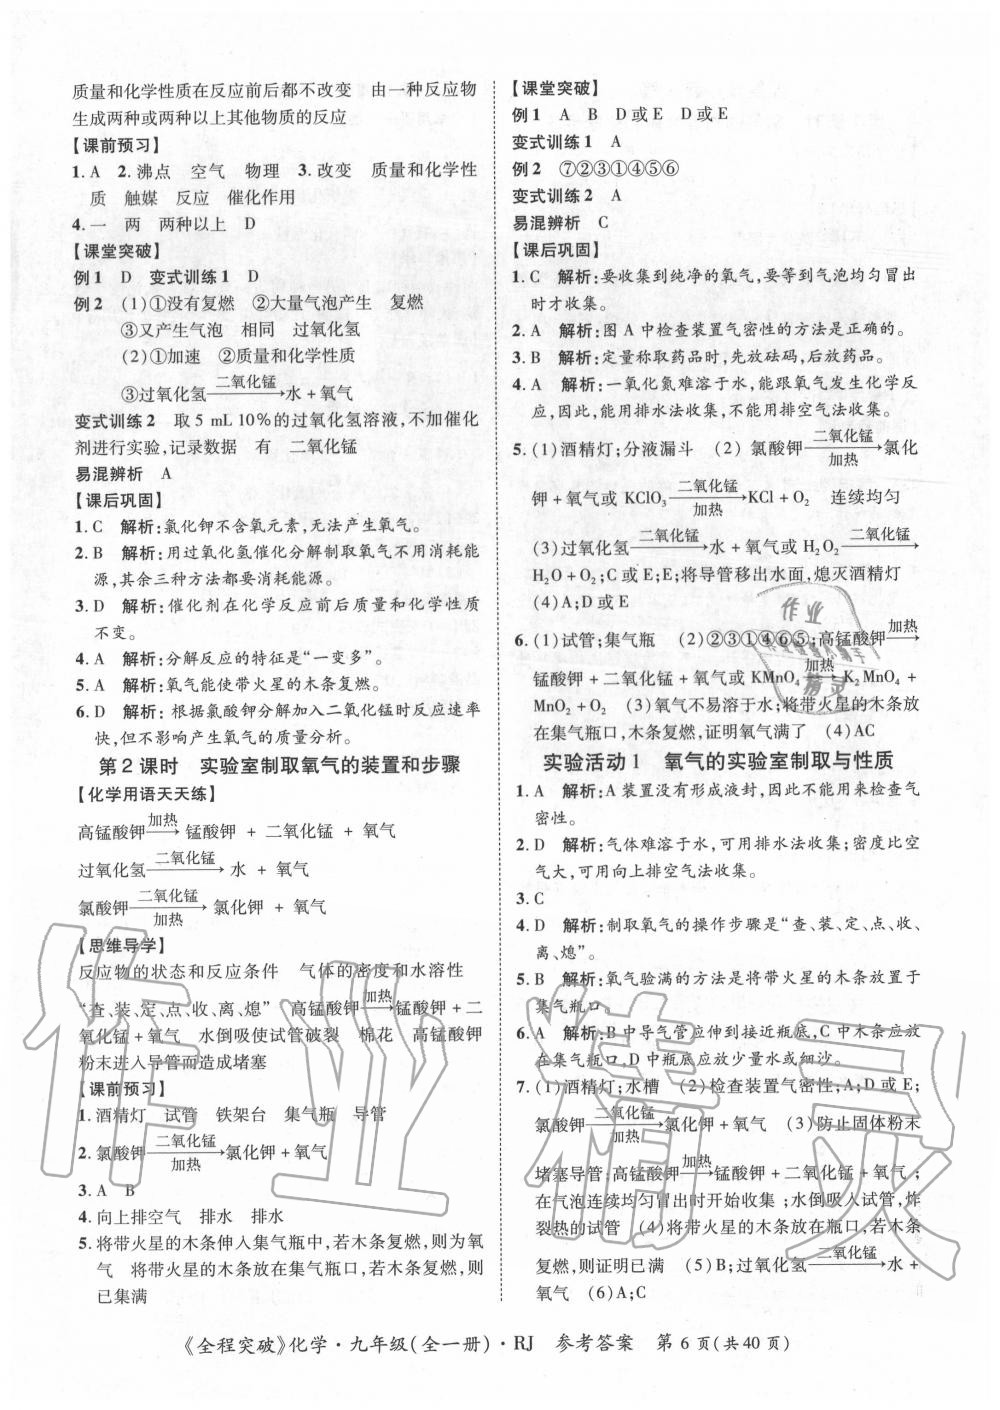 质量和化学性质在反应前后都不改变　由一种反应物
生成两种或两种以上其他物质的反应
【课前预习】
1. A　2. 沸点　空气　物理　3. 改变　质量和化学性
质　触媒　反应　催化作用
4. 一　两　两种以上　D
【课堂突破】
例 1　D　变式训练 1　D
例 2　(1)①没有复燃　②大量气泡产生　复燃
③又产生气泡　相同　过氧化氢
(2)①加速　②质量和化学性质
③过氧化氢 二氧化锰→ 水 + 氧气
变式训练 2　取 5 mL 10%的过氧化氢溶液,不加催化
剂进行实验,记录数据　有　二氧化锰
易混辨析　A
【课后巩固】
1. C　解析:氯化钾不含氧元素,无法产生氧气。
2. B　解析:用过氧化氢催化分解制取氧气不用消耗能
源,其余三种方法都要消耗能源。
3. D　解析:催化剂在化学反应前后质量和化学性质
不变。
4. A　解析:分解反应的特征是“一变多”。
5. A　解析:氧气能使带火星的木条复燃。
6. D　解析:根据氯酸钾分解加入二氧化锰时反应速率
快,但不影响产生氧气的质量分析。
第 2 课时　实验室制取氧气的装置和步骤
【化学用语天天练】
高锰酸钾 加热→ 锰酸钾 + 二氧化锰 + 氧气
过氧化氢 二氧化锰→ 水 + 氧气
氯酸钾 二氧化锰/加热→ 氯化钾 + 氧气
【思维导学】
反应物的状态和反应条件　气体的密度和水溶性
“查、装、定、点、收、离、熄”　高锰酸钾 加热→ 锰酸钾 + 二
氧化锰 + 氧气　水倒吸使试管破裂　棉花　高锰酸钾
粉末进入导管而造成堵塞
【课前预习】
1. 酒精灯　试管　铁架台　集气瓶　导管
2. 氯酸钾 二氧化锰/加热→ 氯化钾 + 氧气
3. A　B
4. 向上排空气　排水　排水
5. 将带火星的木条伸入集气瓶中,若木条复燃,则为氧
气　将带火星的木条放在集气瓶口,若木条复燃,则
已集满
【课堂突破】
例 1　A　B　D 或 E　D 或 E
变式训练 1　A
例 2　⑦②③①④⑤⑥
变式训练 2　A
易混辨析　C
【课后巩固】
1. C　解析:要收集到纯净的氧气,要等到气泡均匀冒出
时才收集。
2. A　解析:图 A 中检查装置气密性的方法是正确的。
3. B　解析:定量称取药品时,先放砝码,后放药品。
4. A　解析:一氧化氮难溶于水,能跟氧气发生化学反
应,因此,能用排水法收集,不能用排空气法收集。
5. (1)酒精灯;分液漏斗　(2) 氯酸钾 二氧化锰/加热→ 氯化
钾 + 氧气或 KClO₃ 二氧化锰/加热→ KCl + O₂　连续均匀
(3)过氧化氢 二氧化锰→ 水 + 氧气或 H₂O₂ 二氧化锰→
H₂O + O₂;C 或 E;E;将导管移出水面,熄灭酒精灯
(4)A;D 或 E
6. (1)试管;集气瓶　(2)②③①④⑥⑤;高锰酸钾 加热→
锰酸钾 + 二氧化锰 + 氧气或 KMnO₄ 加热→ K₂MnO₄ +
MnO₂ + O₂　(3)氧气不易溶于水;将带火星的木条放
在集气瓶口,木条复燃,证明氧气满了　(4)AC
实验活动 1　氧气的实验室制取与性质
1. A　解析:A 装置没有形成液封,因此不能用来检查气
密性。
2. D　解析:气体难溶于水,可用排水法收集;密度比空
气大,可用向上排空气法收集。
3. C
4. D　解析:制取氧气的操作步骤是“查、装、定、点、收、
离、熄”。
5. B　解析:氧气验满的方法是将带火星的木条放置于
集气瓶口。
6. A　解析:B 中导气管应伸到接近瓶底,C 中木条应放
在集气瓶口,D 中瓶底应放少量水或细沙。
7. (1)酒精灯;水槽　(2)检查装置气密性;A;D 或 E;
氯酸钾 二氧化锰/加热→ 氯化钾 + 氧气　(3)防止固体粉末
堵塞导管;高锰酸钾 加热→ 锰酸钾 + 二氧化锰 + 氧气;
在气泡连续均匀冒出时开始收集;水倒吸入试管,炸
裂热的试管　(4)将带火星的木条放在瓶口,若木条
复燃,则证明已满　(5)B;过氧化氢 二氧化锰→ 水 +
氧气　(6)A;C
《全程突破》化学·九年级(全一册)·RJ　参考答案　第 6 页(共 40 页)
作业精灵